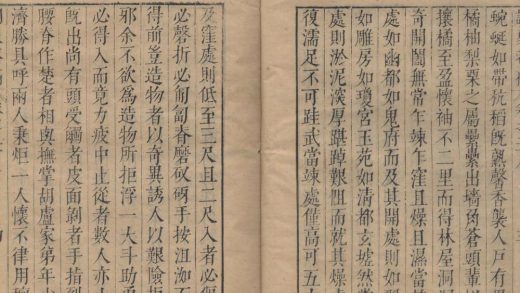 蜿蜒如帶秔稻旣熟馨香襲人戸有
橘柚梨栗之屬纍纍出墻角蒼頭輩
攘橘至盈懷袖不二里而得林屋洞
奇開闔無常乍竦乍窪且燥且濕當
處如幽都如鬼府而及其開處則如
如雕房如瓊宮玉苑如清都玄墟然
處則淤泥深厚踸踔艱阻而就其燥
復濡足不可跬武當竦處僅高可五
及窪處則低至三尺且二尺入者必傴
必磬折必匍匐脊磨仄砑手按沮洳不
得前豈造物者以奇異誘人以艱險
邪余不欲爲造物所拒浮一大斗助勇
必得入而竟方疲中止從者數人亦
旣出尚有頭受礪者皮面剝者手指
腰脊作楚者相與撫掌胡盧家弟年少
濟勝具呼兩人乘炬一人懷不律用